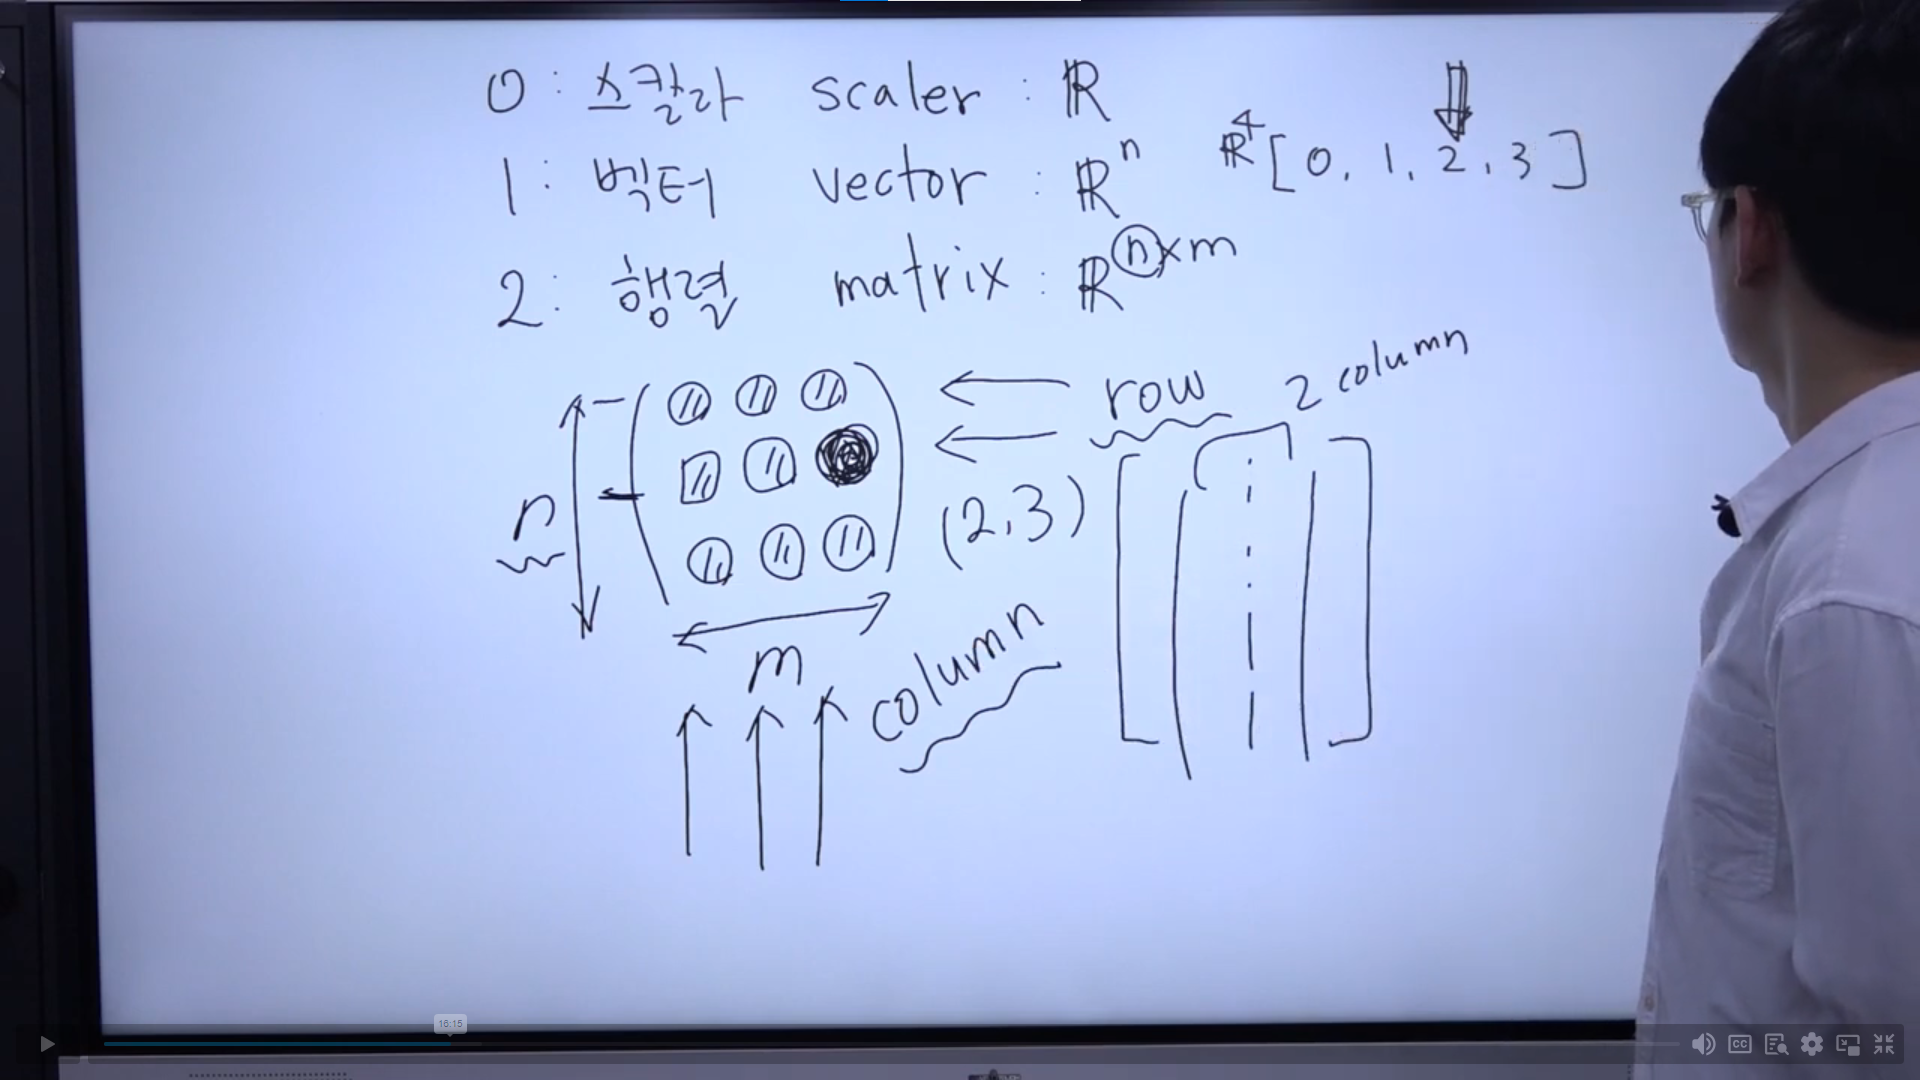 0 : 스칼라 scaler : ℝ
1 : 벡터 vector : ℝⁿ
ℝ⁴ [ 0, 1, 2, 3 ]
2 : 행렬 matrix : ℝⁿˣᵐ
row
2 column
n
(2,3)
m
column
16:15
CC